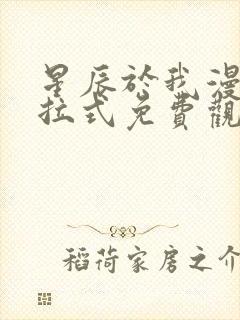 星辰於我漫
拉式免費觀
稻荷家房之介